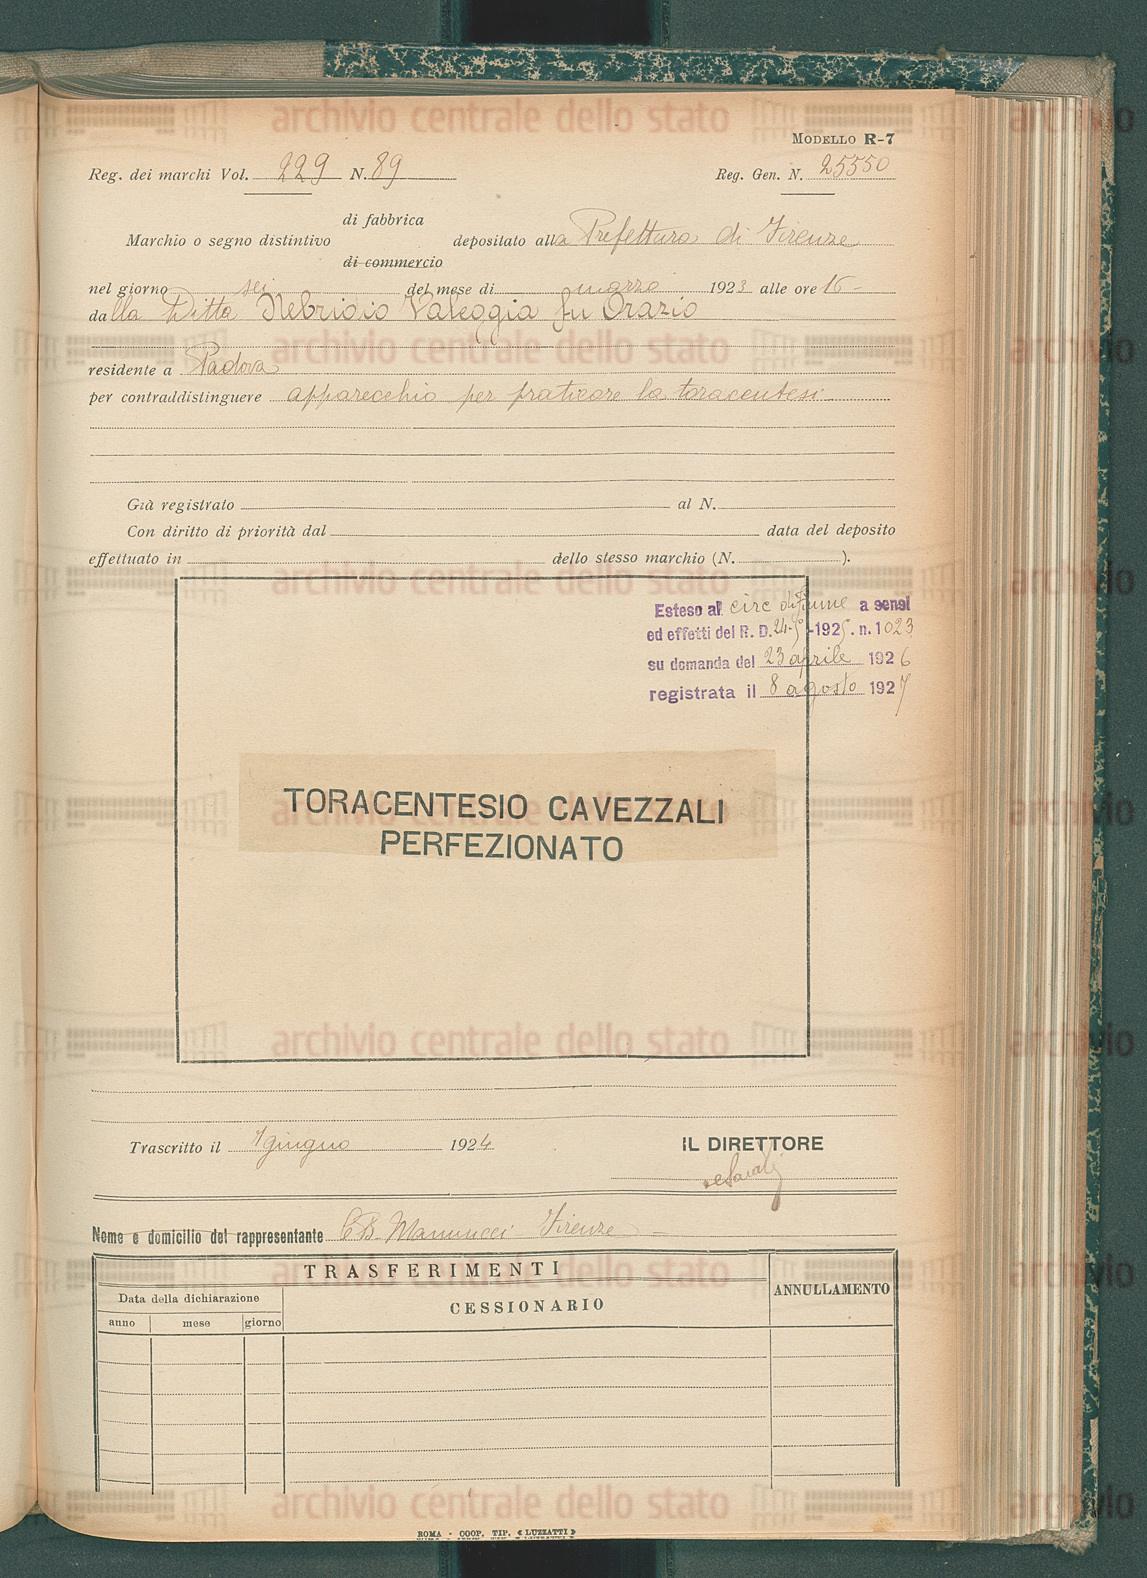 MODELLO R-7
Reg. dei marchi Vol. 229 N. 89 Reg. Gen. N. 25550
di fabbrica
Marchio o segno distintivo depositato alla Prefettura di Firenze
di commercio
nel giorno sei del mese di marzo 1923 alle ore 16 -
dalla Ditta Nebridio Valeggia fu Orazio
residente a Padova
per contraddistinguere apparecchio per praticare la toracentesi
Già registrato al N.
Con diritto di priorità dal data del deposito
effettuato in dello stesso marchio (N. ).
Esteso al circ di Fiume a sensi
ed effetti del R. D. 24-9-1925. n. 1023
su domanda del 23 aprile 1926
registrata il 8 agosto 1927
TORACENTESIO CAVEZZALI
PERFEZIONATO
Trascritto il 7 giugno 1924 IL DIRETTORE
Nome e domicilio del rappresentante C B. Mannucci Firenze -
TRASFERIMENTI
Data della dichiarazione
CESSIONARIO
ANNULLAMENTO
anno mese giorno
ROMA - COOP. TIP. «LUZZATTI»
archivio centrale dello stato